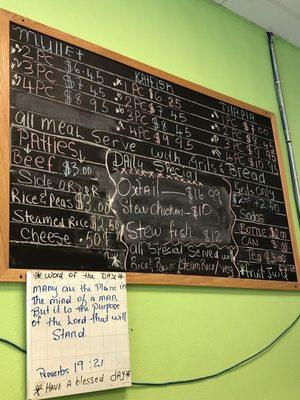 Mullet
2PC $6.45
3PC $7.45
4PC $8.95
Katfish
1PC $6.25
2PC $7.45
3PC $8.45
4PC $9.95
Tilapia
1PC $7.
2PC $8.
3PC $9
4PC $10
all meal serve with Grits & Bread
Patties
Beef $3.00
Side or
Rice & Peas $3.00
Steamed Rice $2.50
Cheese .50¢
Daily Special
Oxtail $16.99
Stew chicken - $10
Stew fish $12
all Special Served w/
Rice
Only
$2.50
Sodas
Bottle $2.00
Can $1.00
Tea $3.00
*Fruit Juice
* Word of the Day *
Many are the Plans in
the mind of a man,
But it is the Purpose
of the Lord that will
Stand.
Proverbs 19:21
* Have a blessed day *